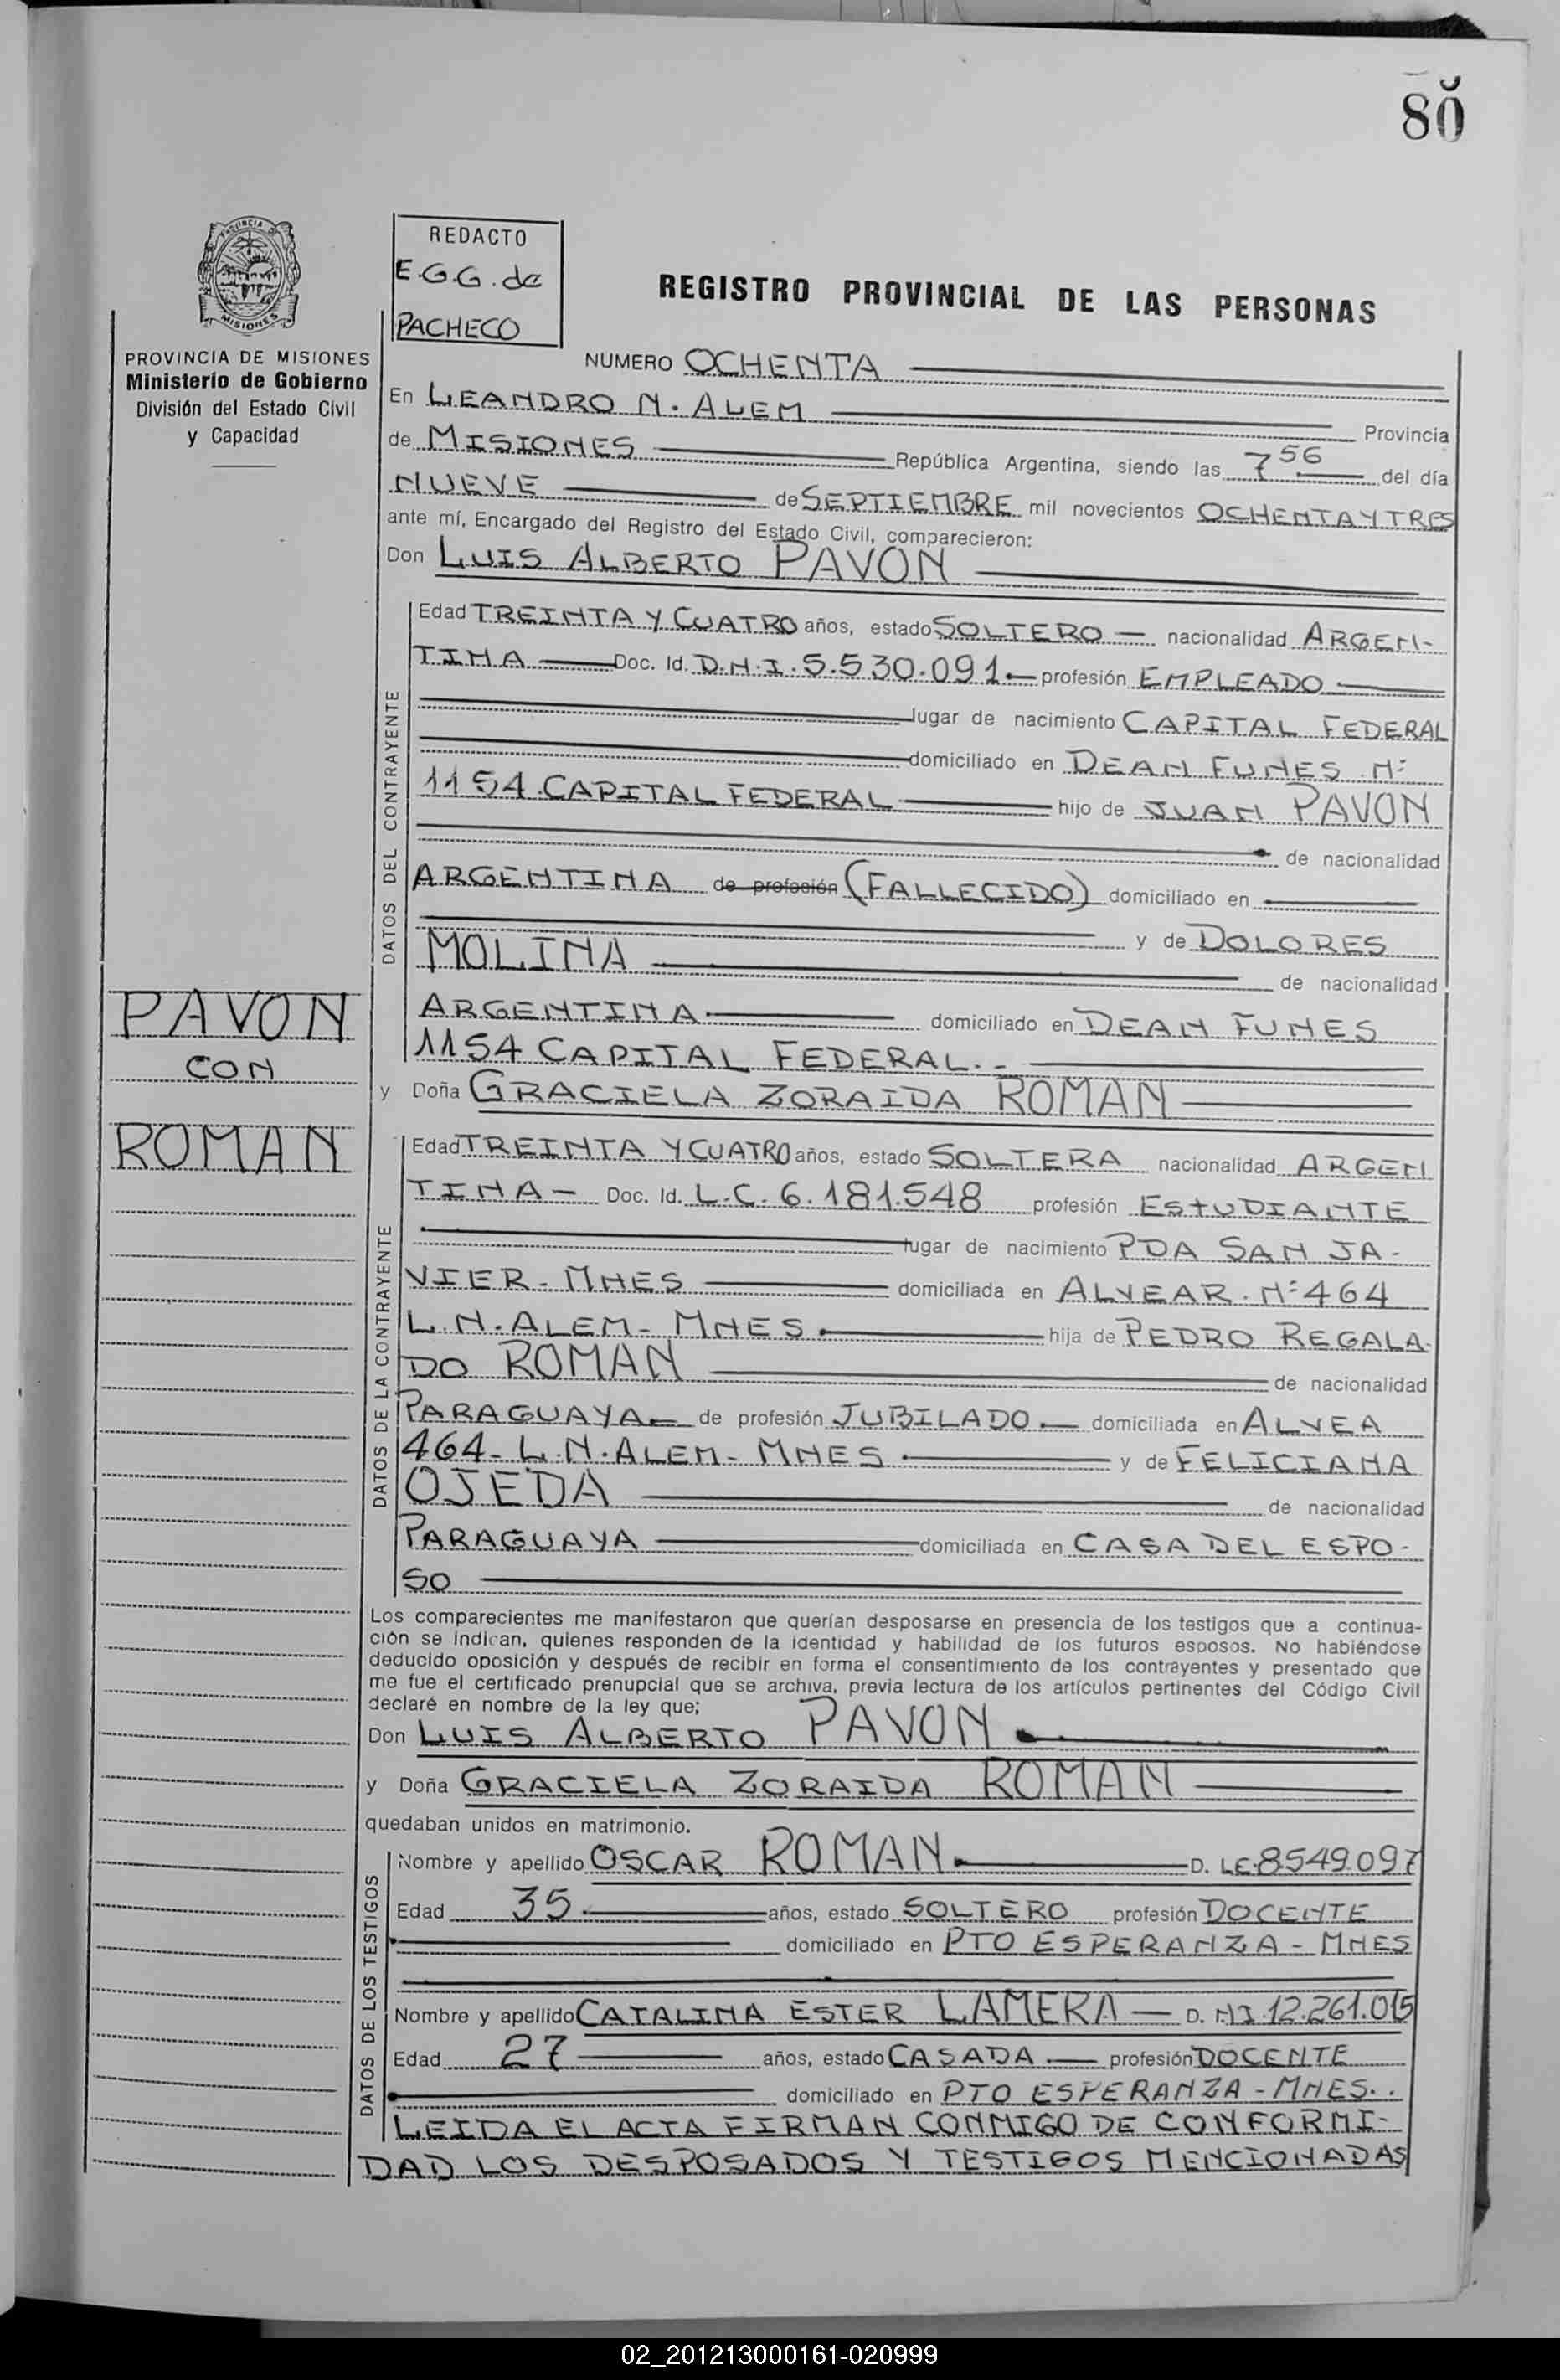 80
REDACTO
E.G.G. de
PACHECO
PROVINCIA DE MISIONES
Ministerio de Gobierno
División del Estado Civil
y Capacidad
REGISTRO PROVINCIAL DE LAS PERSONAS
NUMERO OCHENTA
En LEANDRO N. ALEM Provincia
de MISIONES República Argentina, siendo las 7 56 del día
NUEVE de SEPTIEMBRE mil novecientos OCHENTA Y TRES
ante mí, Encargado del Registro del Estado Civil, comparecieron:
Don LUIS ALBERTO PAVON
DATOS DEL CONTRAYENTE
Edad TREINTA Y CUATRO años, estado SOLTERO — nacionalidad ARGEN-
TINA — Doc. Id. D.N.I. 5.530.091 — profesión EMPLEADO
lugar de nacimiento CAPITAL FEDERAL
domiciliado en DEAN FUNES Nº
1154 CAPITAL FEDERAL hijo de JUAN PAVON
de nacionalidad
ARGENTINA de profesión (FALLECIDO) domiciliado en
y de DOLORES
MOLINA de nacionalidad
ARGENTINA domiciliado en DEAN FUNES
1154 CAPITAL FEDERAL.-
PAVON
CON
ROMAN
y Doña GRACIELA ZORAIDA ROMAN
DATOS DE LA CONTRAYENTE
Edad TREINTA Y CUATRO años, estado SOLTERA nacionalidad ARGEN
TINA — Doc. Id. L.C. 6.181.548 profesión ESTUDIANTE
lugar de nacimiento PDA SAN JA-
VIER - MNES domiciliada en ALVEAR. Nº 464
L.N. ALEM - MNES hija de PEDRO REGALA-
DO ROMAN de nacionalidad
PARAGUAYA — de profesión JUBILADO — domiciliada en ALVEA
464 - L.N. ALEM - MNES y de FELICIANA
OJEDA de nacionalidad
PARAGUAYA domiciliada en CASA DEL ESPO-
SO
Los comparecientes me manifestaron que querían desposarse en presencia de los testigos que a continua-
ción se indican, quienes responden de la identidad y habilidad de los futuros esposos. No habiéndose
deducido oposición y después de recibir en forma el consentimiento de los contrayentes y presentado que
me fue el certificado prenupcial que se archiva, previa lectura de los artículos pertinentes del Código Civil
declaré en nombre de la ley que;
Don LUIS ALBERTO PAVON
y Doña GRACIELA ZORAIDA ROMAN
quedaban unidos en matrimonio.
DATOS DE LOS TESTIGOS
Nombre y apellido OSCAR ROMAN D. LE 8549.097
Edad 35 años, estado SOLTERO profesión DOCENTE
domiciliado en PTO ESPERANZA - MNES
Nombre y apellido CATALINA ESTER LAMERA — D. NI 12.261.015
Edad 27 años, estado CASADA — profesión DOCENTE
domiciliado en PTO ESPERANZA - MNES..
LEIDA EL ACTA FIRMAN CONMIGO DE CONFORMI-
DAD LOS DESPOSADOS Y TESTIGOS MENCIONADAS
02_201213000161-020999